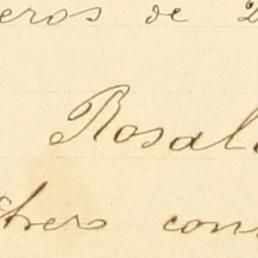 eros de
Rosal
tres cons